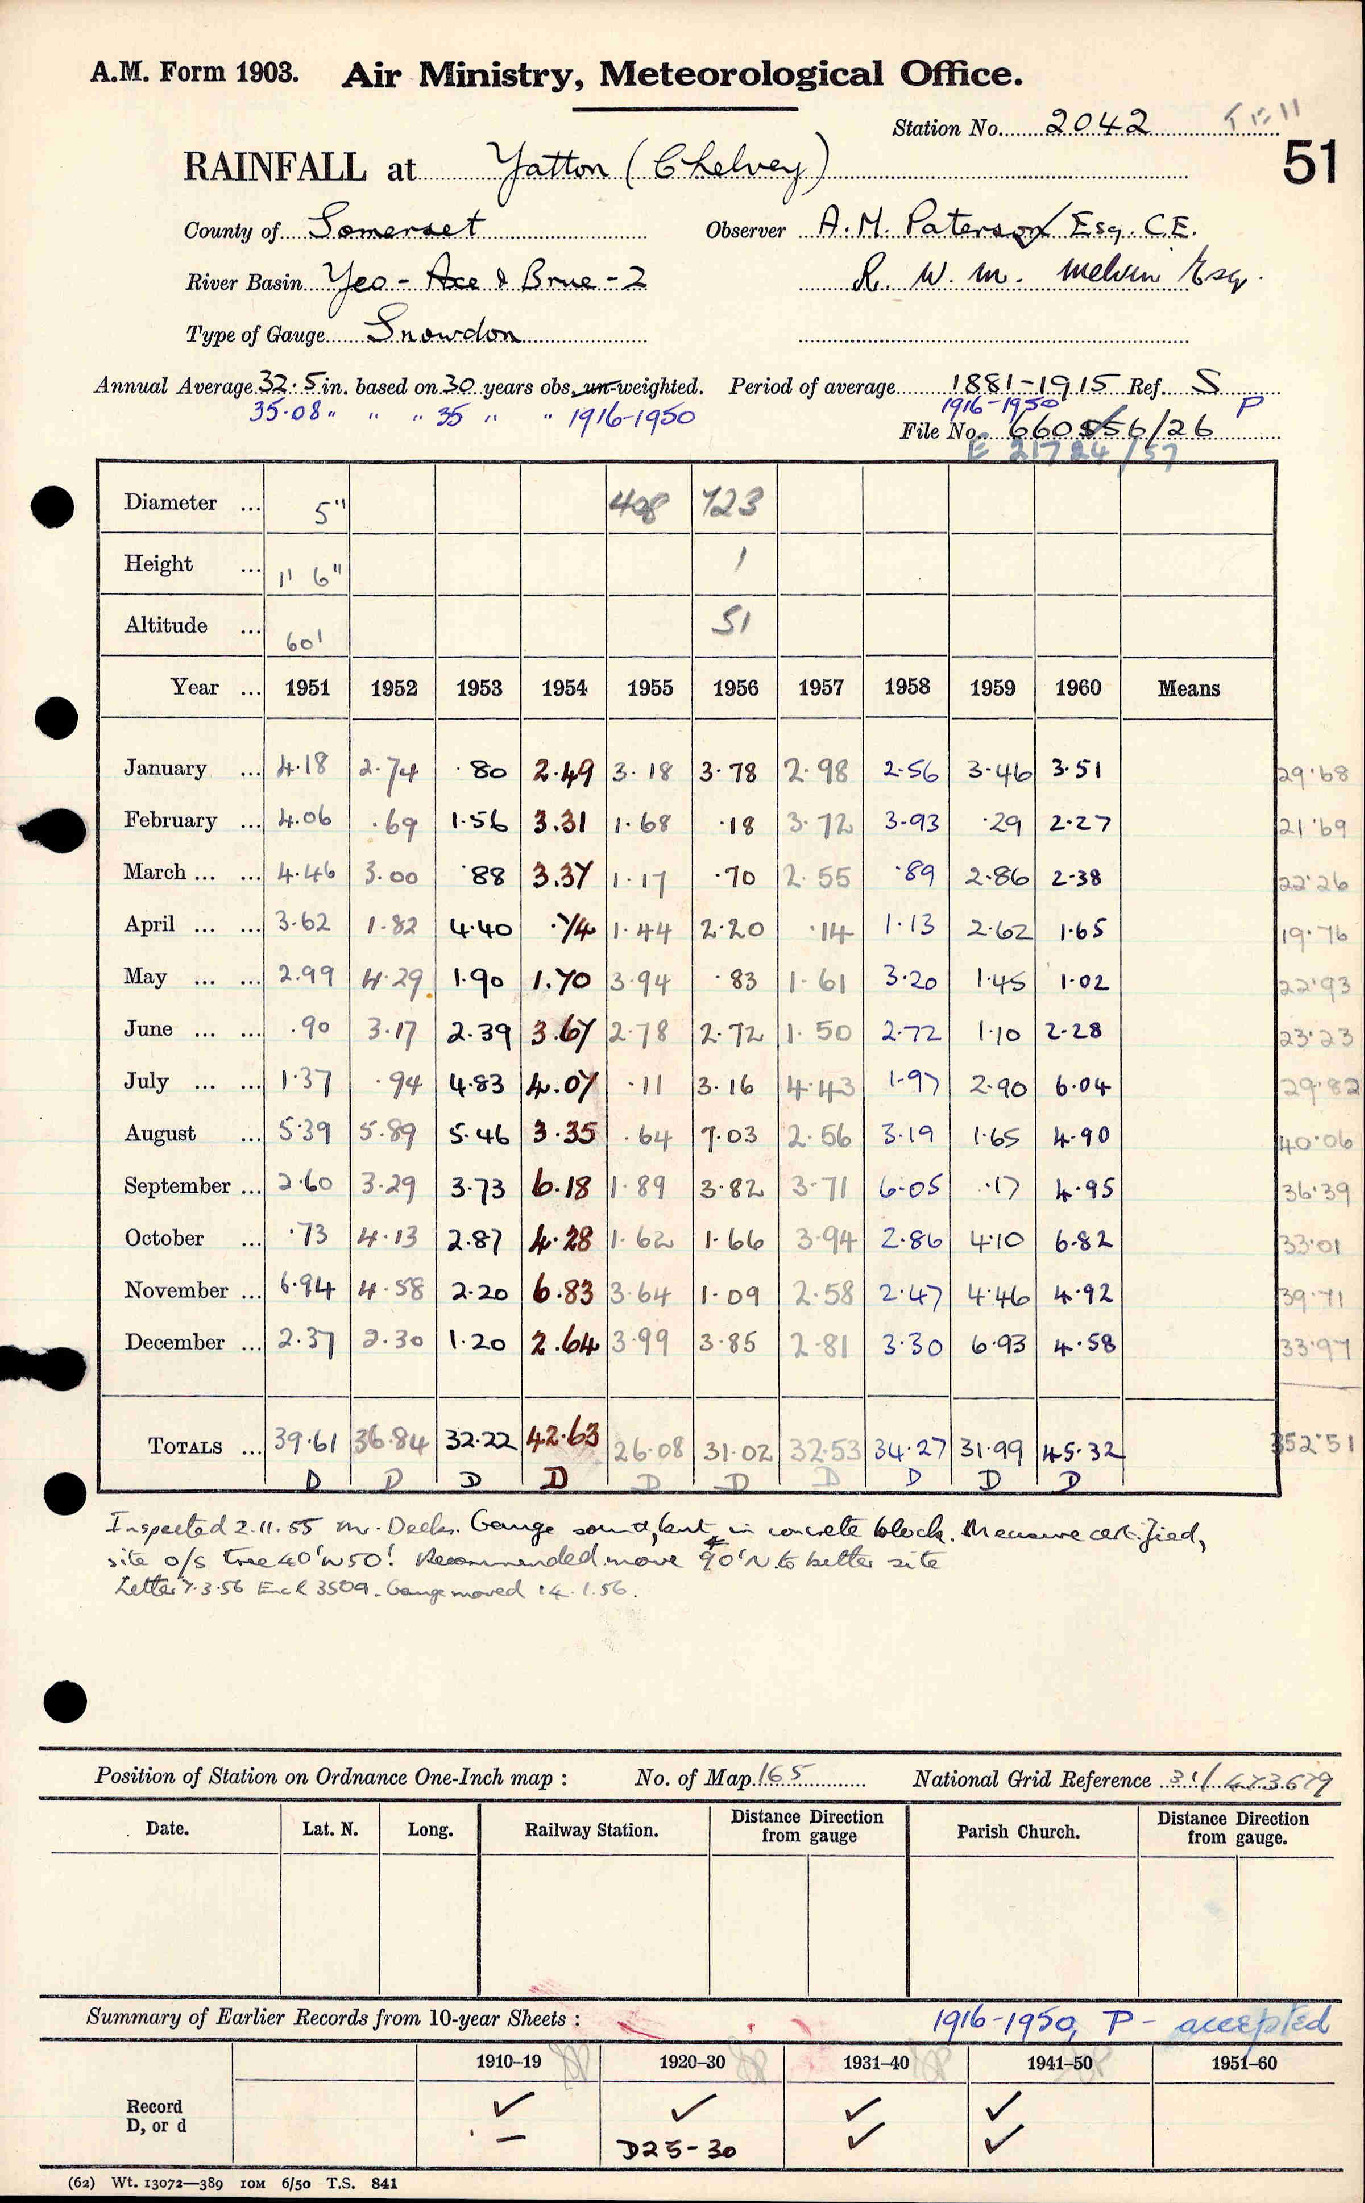 A.M. Form 1903. Air Ministry, Meteorological Office.
Station No. 2042
51
RAINFALL at Yatton (Chelvey)
County of Somerset Observer A.M. Paterson Esq. C.E.
River Basin Yeo - Axe & Brue - 2 R. W. M. Melvin Esq.
Type of Gauge Snowdon
Annual Average 32.5 in. based on 30 years obs. un-weighted. Period of average 1881-1915 Ref. S
35.08 " " " 35 " " 1916-1950 1916-1950 P
File No. 660556/26
E 21724/57
Diameter ... 5" 408 723
Height ... 1' 6" 1
Altitude ... 60' 51
Year ... 1951 1952 1953 1954 1955 1956 1957 1958 1959 1960 Means
January ... 4.18 2.74 .80 2.49 3.18 3.78 2.98 2.56 3.46 3.51 29.68
February ... 4.06 .69 1.56 3.31 1.68 .18 3.72 3.93 .29 2.27 21.69
March ... ... 4.46 3.00 .88 3.37 1.17 .70 2.55 .89 2.86 2.38 22.26
April ... ... 3.62 1.82 4.40 .74 1.44 2.20 .14 1.13 2.62 1.65 19.76
May ... ... 2.99 4.29 1.90 1.70 3.94 .83 1.61 3.20 1.45 1.02 22.93
June ... ... .90 3.17 2.39 3.67 2.78 2.72 1.50 2.72 1.10 2.28 23.23
July ... ... 1.37 .94 4.83 4.07 .11 3.16 4.43 1.97 2.90 6.04 29.82
August ... 5.39 5.89 5.46 3.35 .64 7.03 2.56 3.19 1.65 4.90 40.06
September ... 2.60 3.29 3.73 6.18 1.89 3.82 3.71 6.05 .17 4.95 36.39
October ... .73 4.13 2.87 4.28 1.62 1.66 3.94 2.86 4.10 6.82 33.01
November ... 6.94 4.58 2.20 6.83 3.64 1.09 2.58 2.47 4.46 4.92 39.71
December ... 2.37 2.30 1.20 2.64 3.99 3.85 2.81 3.30 6.93 4.58 33.97
TOTALS ... 39.61 36.84 32.22 42.63 26.08 31.02 32.53 34.27 31.99 45.32 352.51
D D D D D D D D D D
Inspected 2.11.55 Mr. Decks. Gauge sound, but in concrete block. Measure certified,
site o/s tree 40' N 50'. Recommended move 90' N. to better site
Letter 7.3.56 Encl 3509. Gauge moved 14.1.56.
Position of Station on Ordnance One-Inch map : No. of Map 165 National Grid Reference 31/473679
Date. Lat. N. Long. Railway Station. Distance Direction from gauge Parish Church. Distance Direction from gauge.
Summary of Earlier Records from 10-year Sheets : 1916-1950, P - accepted
1910-19 1920-30 1931-40 1941-50 1951-60
Record ✓ ✓ ✓ ✓
D, or d — D25-30 ✓ ✓
(62) Wt. 13072—389 10M 6/50 T.S. 841